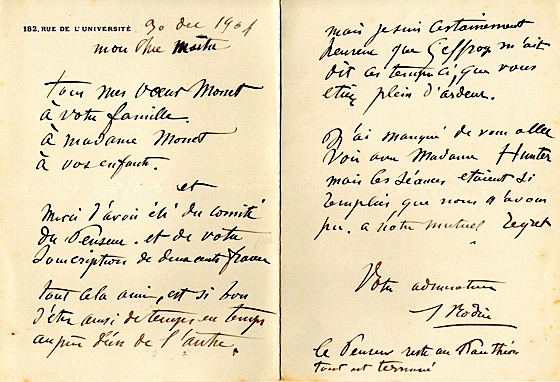 182, RUE DE L'UNIVERSITÉ 30 dec 1904
mon cher maitre
Tous mes vœux Monet
à votre famille
à madame Monet
à vos enfants.
et
merci d'avoir été du comité
du Penseur. et de votre
souscription de deux cents francs
tout cela ami, est si bon
d'être ainsi de temps en temps
auprès l'un de l'autre.
mais je suis certainement
heureux que Geffroy m'ait
dit ces temps ci, que vous
etiez plein d'ardeur.
J'ai manqué de vous aller
voir avec Madame Hunter
mais les séances etaient si
remplies que nous n'avons
pu. a notre mutuel regret
Votre admirateur
A Rodin
le Penseur reste au Panthéon
tout est terminé